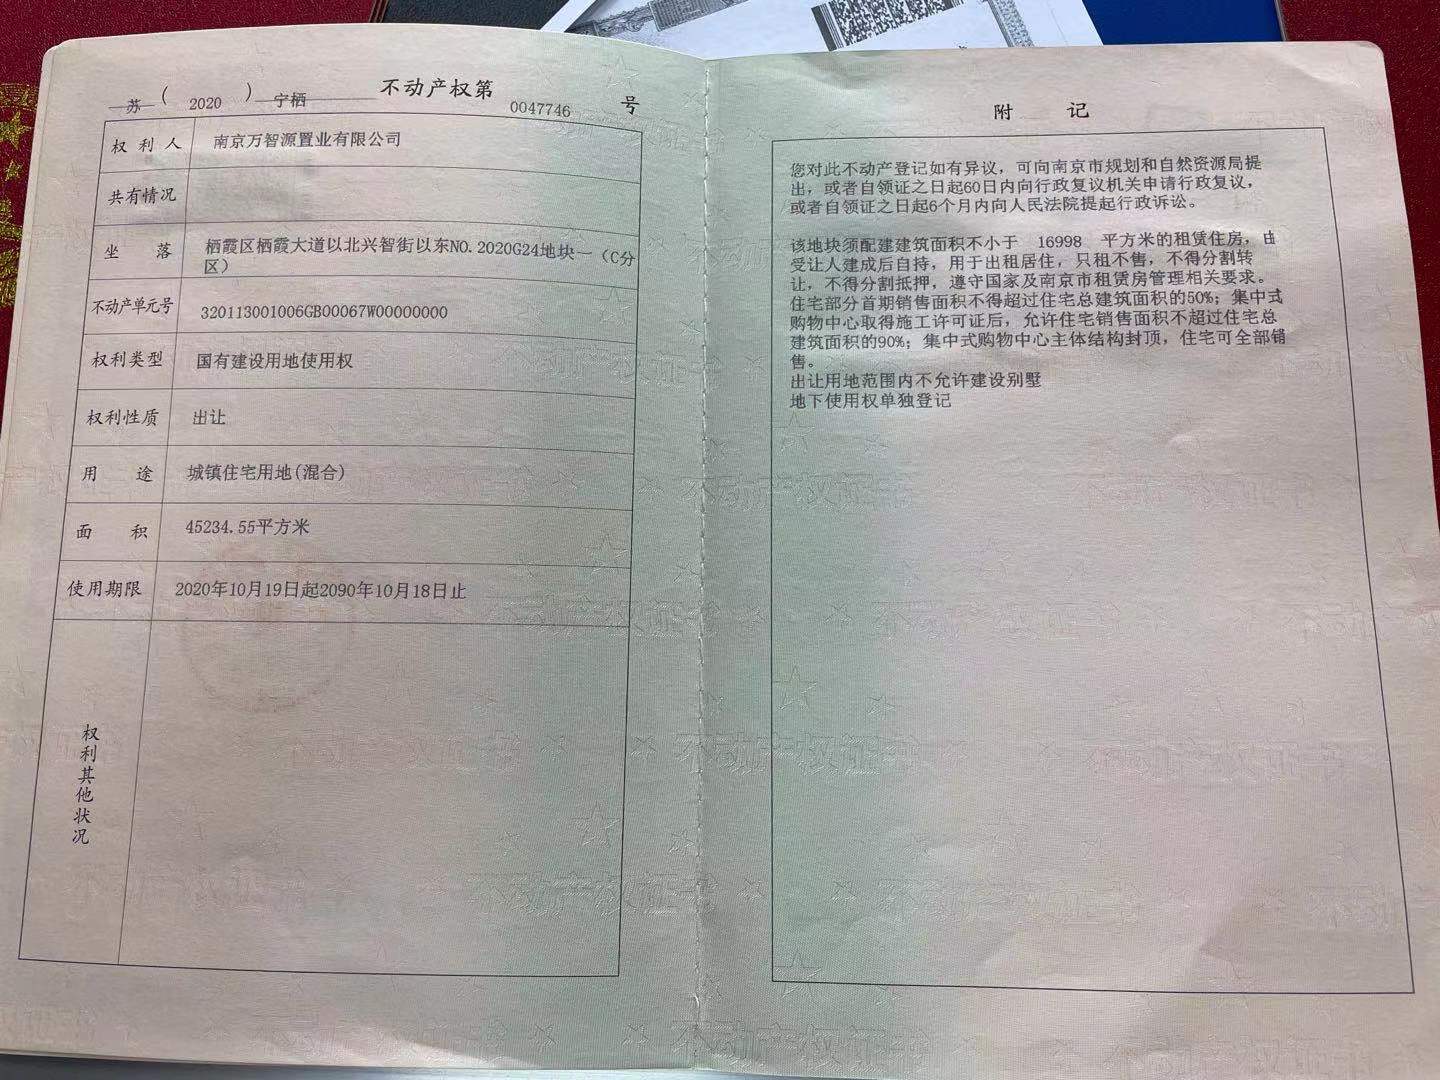 苏(2020)宁栖不动产权第0047746号
权利人 南京万智源置业有限公司
共有情况
坐落 栖霞区栖霞大道以北兴智街以东NO.2020G24地块一（C分
区）
不动产单元号 320113001006GB00067W00000000
权利类型 国有建设用地使用权
权利性质 出让
用途 城镇住宅用地(混合)
面积 45234.55平方米
使用期限 2020年10月19日起2090年10月18日止
权利其他状况
附记
您对此不动产登记如有异议，可向南京市规划和自然资源局提
出，或者自领证之日起60日内向行政复议机关申请行政复议，
或者自领证之日起6个月内向人民法院提起行政诉讼。
该地块须配建建筑面积不小于 16998 平方米的租赁住房，由
受让人建成后自持，用于出租居住，只租不售，不得分割转
让，不得分割抵押，遵守国家及南京市租赁房管理相关要求。
住宅部分首期销售面积不得超过住宅总建筑面积的50%；集中式
购物中心取得施工许可证后，允许住宅销售面积不超过住宅总
建筑面积的90%；集中式购物中心主体结构封顶，住宅可全部销
售。
出让用地范围内不允许建设别墅
地下使用权单独登记